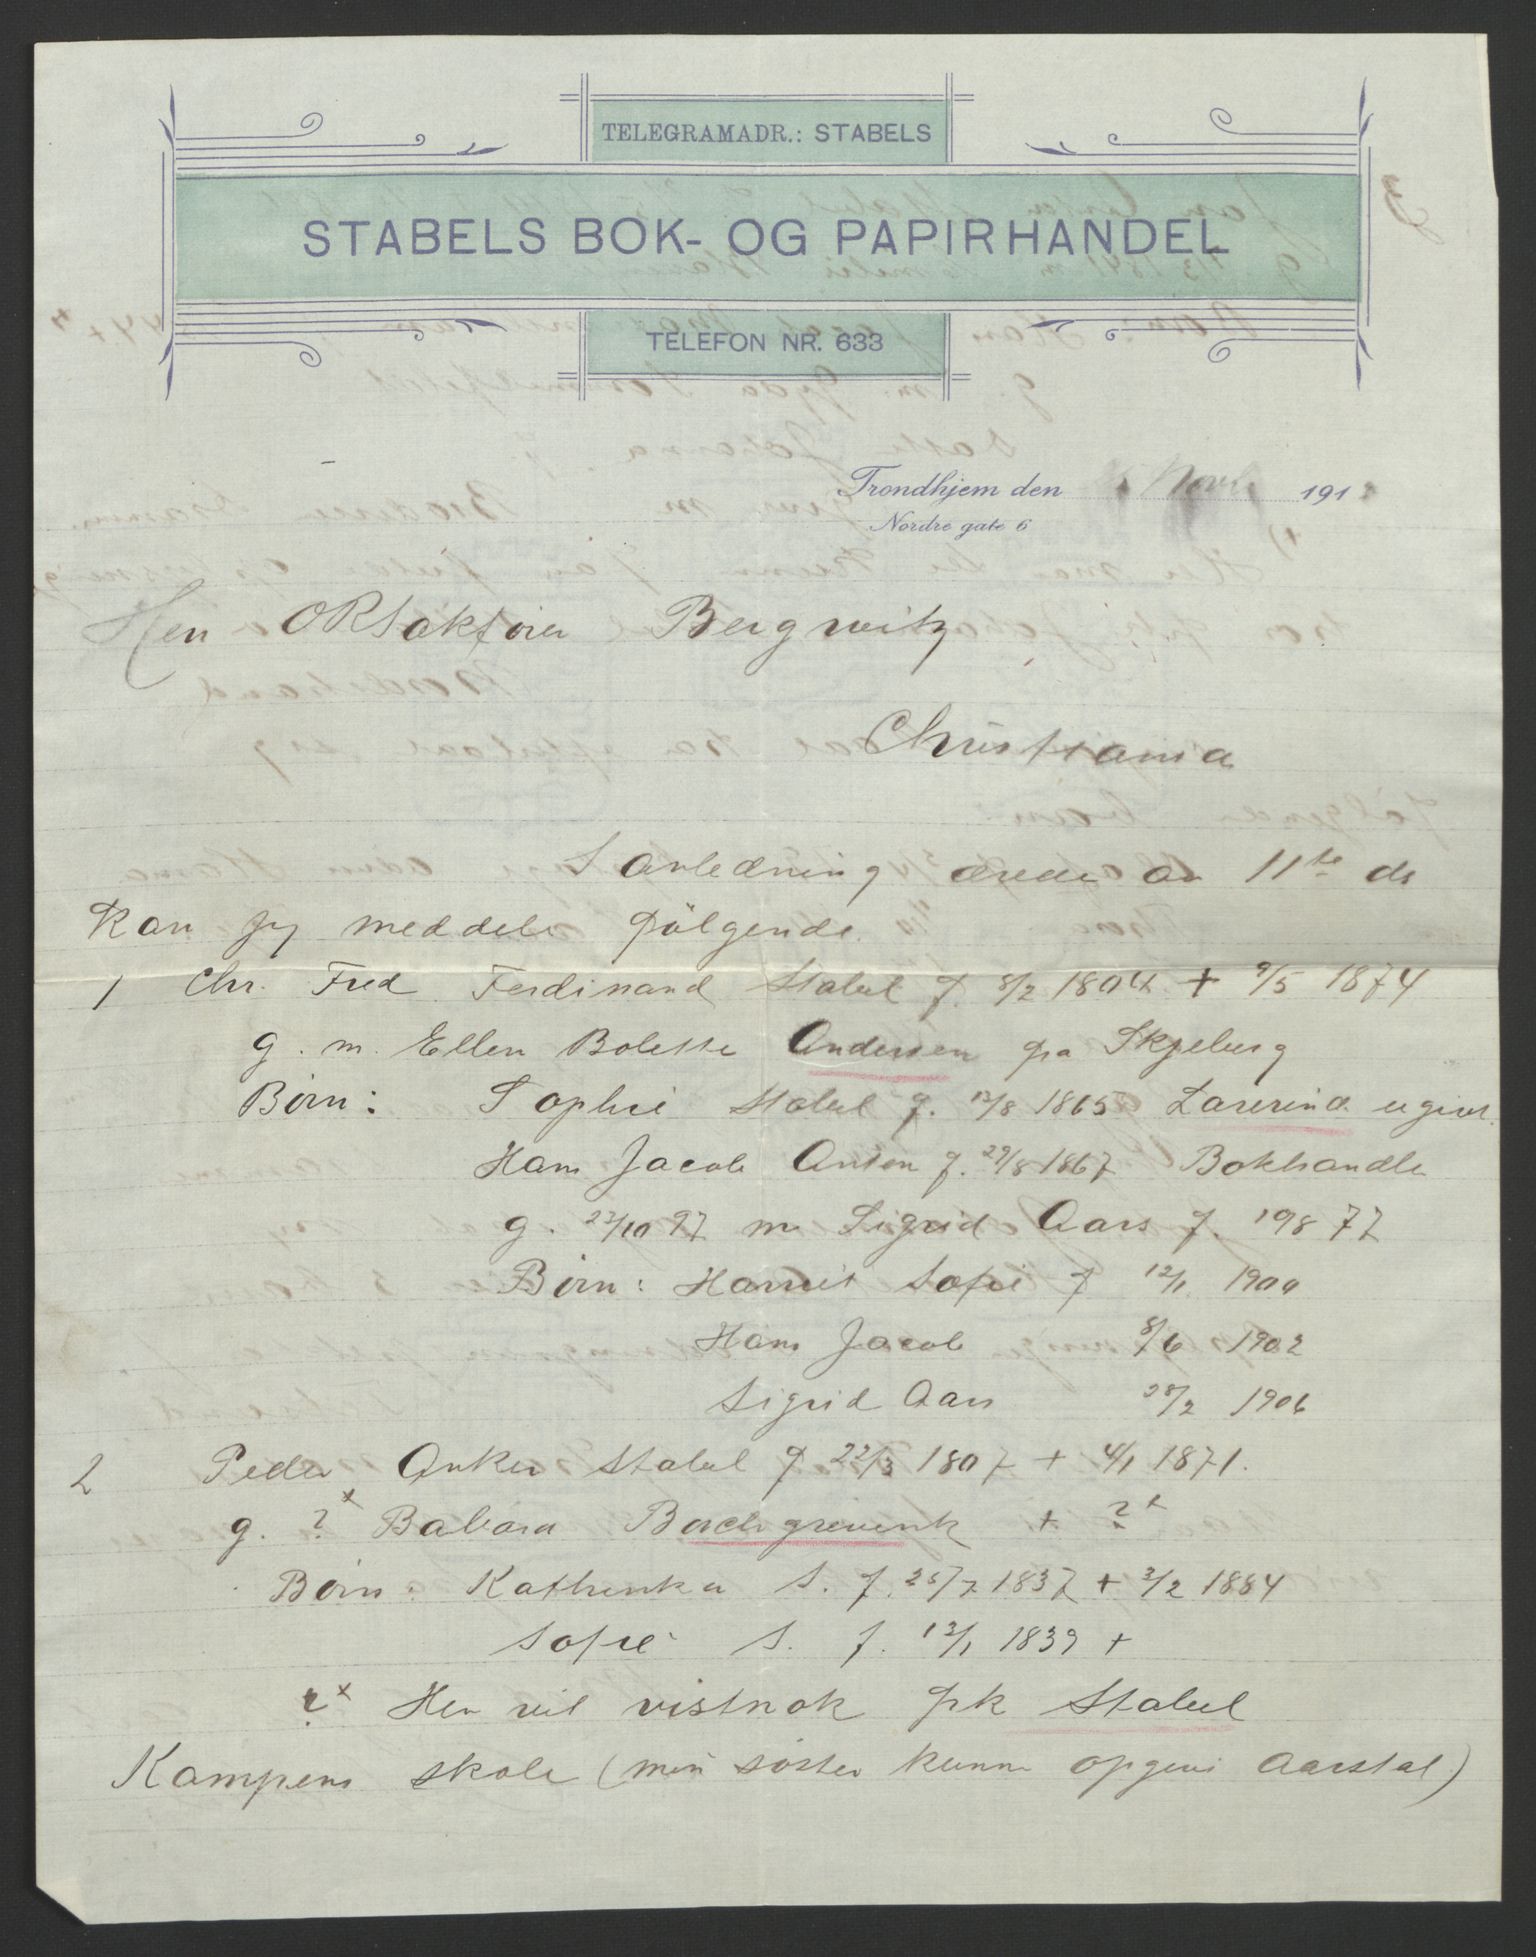 TELEGRAMADR.: STABELS
STABELS BOK- OG PAPIRHANDEL
TELEFON NR. 633
Trondhjem den Novb 191
Nordre gate 6
Herr Bergwitz
Christiania
I anledning ærede av 11te ds
kan jeg meddele følgende.
1 Chr. Fred. Ferdinand Stabel f. 8/2 1804 + 9/5 1874
g. m. Ellen Bolette Andersen fra Skjeberg
Børn: Sophie Stabel f. 12/8 1865 Lærerinde ugivt.
Hans Jacob Anton f. 29/8 1867 Bokhandler
g. 22/10 97 m Sigrid Aars f. 19 8 77
Børn: Harriet Sofie f 12/1 1900
Hans Jacob 8/6 1902
Sigrid Aars 28/2 1906
2 Peder Anker Stabel f 22/3 1807 + 4/1 1871.
g. ?x Babara Borchgrevink + ?x
Børn: Kathrinka S. f. 25/7 1837 + 3/2 1884
Sofie S. f. 12/1 1839 +
?x Her vil vistnok frk Stabel
Kampens skole (min søster kunne opgive Aarstal)
3